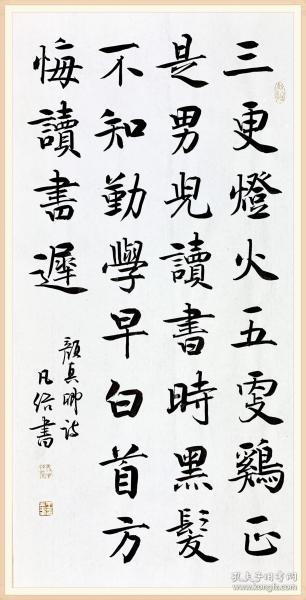 三更燈火五更鷄正
是男兒讀書時黑髮
不知勤學早白首方
悔讀書遲
顏真卿詩
凡 書
孔夫子旧书网